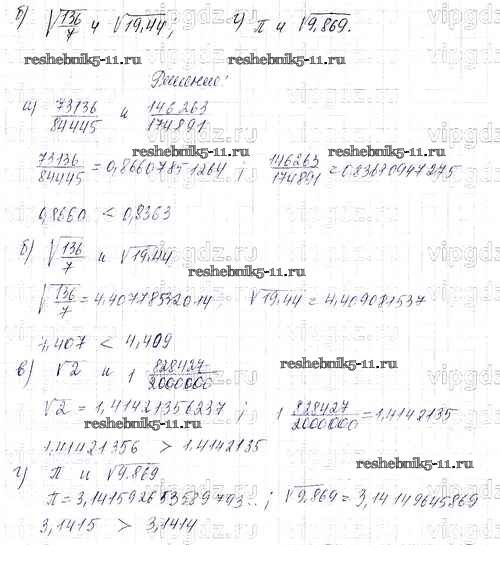 б) √136/7 и √19,44; г) π и √9,869.
reshebnik5-11.ru reshebnik5-11.ru
Решение:
а) 73136/84445 и 146263/174891
reshebnik5-11.ru
73136/84445 = 0,86607851264 ; 146263/174891 = 0,83630947275
0,8660 < 0,8363
б) √136/7 и √19,44
reshebnik5-11.ru
√136/7 = 4,40778532014; √19,44 = 4,409081537
4,407 < 4,409
в) √2 и 1 828427/2000000
reshebnik5-11.ru
√2 = 1,41421356237 ; 1 828427/2000000 = 1,4142135
reshebnik5-11.ru
1,41421356 > 1,4142135
г) π и √9,869
reshebnik5-11.ru
π = 3,141592653589793..; √9,869 = 3,14149645869
3,1415 > 3,1414